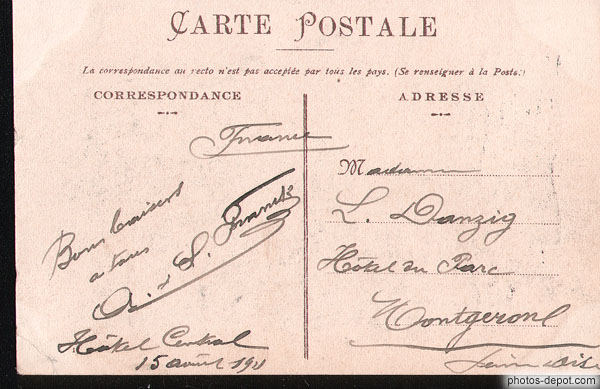 CARTE POSTALE
La correspondance au recto n'est pas acceptée par tous les pays. (Se renseigner à la Poste.)
CORRESPONDANCE
France
Bons baisers
a tous
Hôtel Central
15 août 191
ADRESSE
Madame
L. Danzig
Hôtel du Parc
Montgeron
photos-depot.com